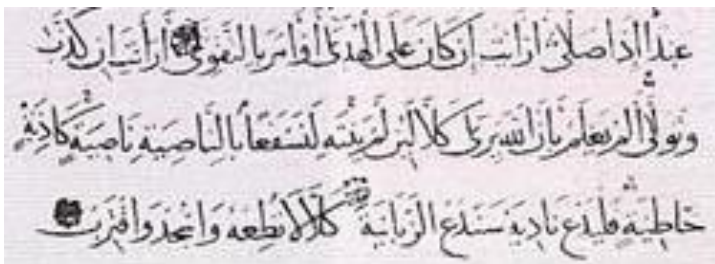 عبدا اذا صلى ارايت ان كان على الهدى او امر بالتقوى ارايت ان كذب
وتولى الم يعلم بان الله يرى كلا لئن لم ينته لنسفعا بالناصية ناصية كاذبة
خاطئة فليدع ناديه سندع الزبانية كلا لا تطعه واسجد واقترب